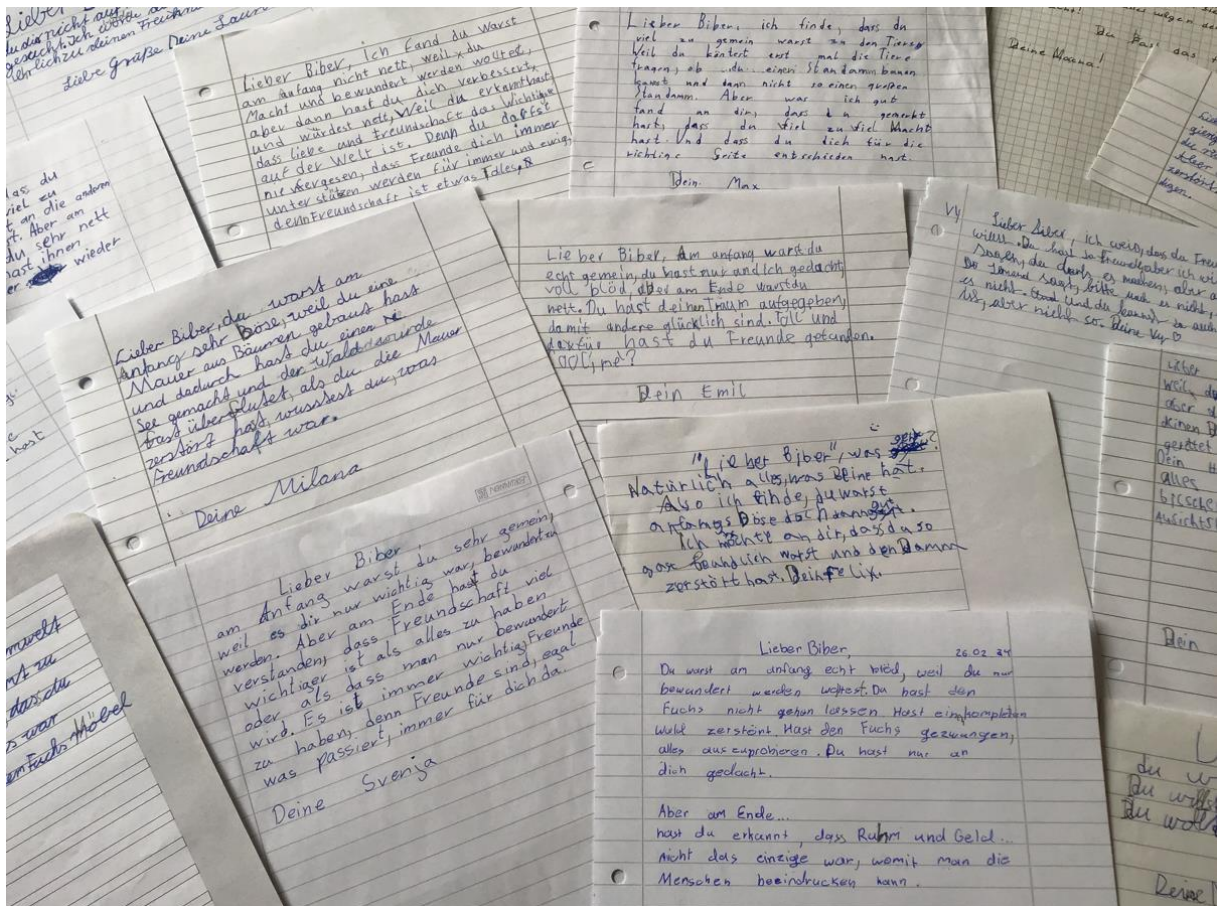 Lieber
du dir nicht auf
gesucht. Ich würde a
ehrlich zu deinen Freunden
Liebe Grüße Deine Laura
Lieber Biber, Ich fand du warst
am Anfang nicht nett, weil du
Macht und bewundert werden woltest,
aber dann hast du dich verbessert,
und würdest nett, Weil du erkannt hast
dass liebe und Freundschaft das Wichtige
auf der Welt ist. Denn du dafst
nie vergesen, dass Freunde dich immer
unter stützen werden für immer und ewig,
denn Freundschaft ist etwas Tolles,
Lieber Biber, ich finde, dass du
viel zu gemein warst zu den Tieren
Weil du köntest erst mal die Tiere
fragen, ob du einen Standamm bauen
kanst und dann nicht so einen großen
Standamm. Aber was ich gut
fand an dir, dass du gemerkt
hast, dass du viel zu viel Macht
hast. Und dass du dich für die
richtige Seite entschieden hast.
Dein Max
Du hast das
as du
viel zu
an die anderen
t. Aber am
du sehr nett
hast ihnen
er wieder
Lieber Biber, du warst am
Anfang sehr Böse, weil du eine
Mauer aus Bäumen gebaus hast
und dadurch hast du einen
See gemacht und der Wald wurde
fast überflutet, als du die Mauer
zerstört hast, wusstest du, was
Freundschaft war.
Deine Milana
Lieber Biber, Am anfang warst du
echt gemein, du hast nur an dich gedacht,
voll blöd, aber am Ende warst du
nett. Du hast deinen Traum aufgegeben,
damit andere glücklich sind. Toll und
dafür hast du Freunde gefunden.
Dein Emil
Vy
Lieber Biber, ich weis, das du Freu
willst. Du hast ja Freunde, aber ich wi
sagen, du darfs es machen, aber a
sagt, bitte mach es nicht,
es nicht und du kannst ja auch
aber nicht so. Deine Vy ♡
"Lieber Biber", was geht?
Natürlich alles, was Beine hat.
Also ich finde, du warst
anfangs Böse doch dann gut.
Ich möchte an dir, das du so
gar freundlich warst und den Damm
zerstört hast. Dein Felix.
Lieber Biber,
am Anfang warst du sehr gemein,
weil es dir nur wichtig war, bewundert zu
werden. Aber am Ende hast du
verstanden, dass Freundschaft viel
wichtiger ist als alles zu haben
oder als dass man nur bewundert
wird. Es ist immer wichtig, Freunde
zu haben, denn Freunde sind, egal
was passiert, immer für dich da.
Deine Svenja
Lieber Biber, 26.02 24
Du warst am anfang echt blöd, weil du nur
bewundert werden woltest. Du hast den
Fuchs nicht gehen lassen. Hast ein kompleten
Wald zerstört. Hast den Fuchs gezwungen,
alles auszuprobieren. Du hast nur an
dich gedacht.
Aber am Ende...
hast du erkannt, dass Ruhm und Geld...
nicht das einzige war, womit man die
Menschen beeindrucken kann.
mwelt
t zu
das du
s war
en Fuchs Möbel
Lieber
weil du
aber d
deinen D
gerettet
Dein
alles
bisschen
Aussichts
Dein
du w
Du wills
Du wolls
Deine